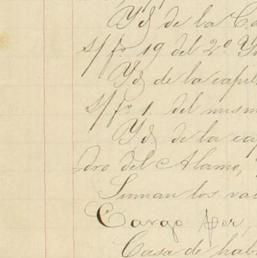 Yd de la Ca
s/ fs 19 del 2º Y
Yd de la capil
s/ fs 1 del mism
Yd de la cap
dro del Alamo,
Suman los va
Cargo por
Casa de hab